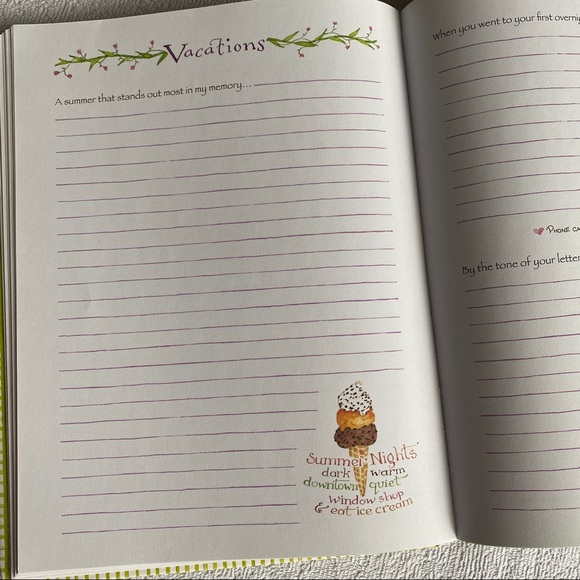 Vacations
A summer that stands out most in my memory...
Summer Nights
dark warm
downtown quiet
window shop
& eat ice cream
When you went to your first
PHONE
By the tone of your